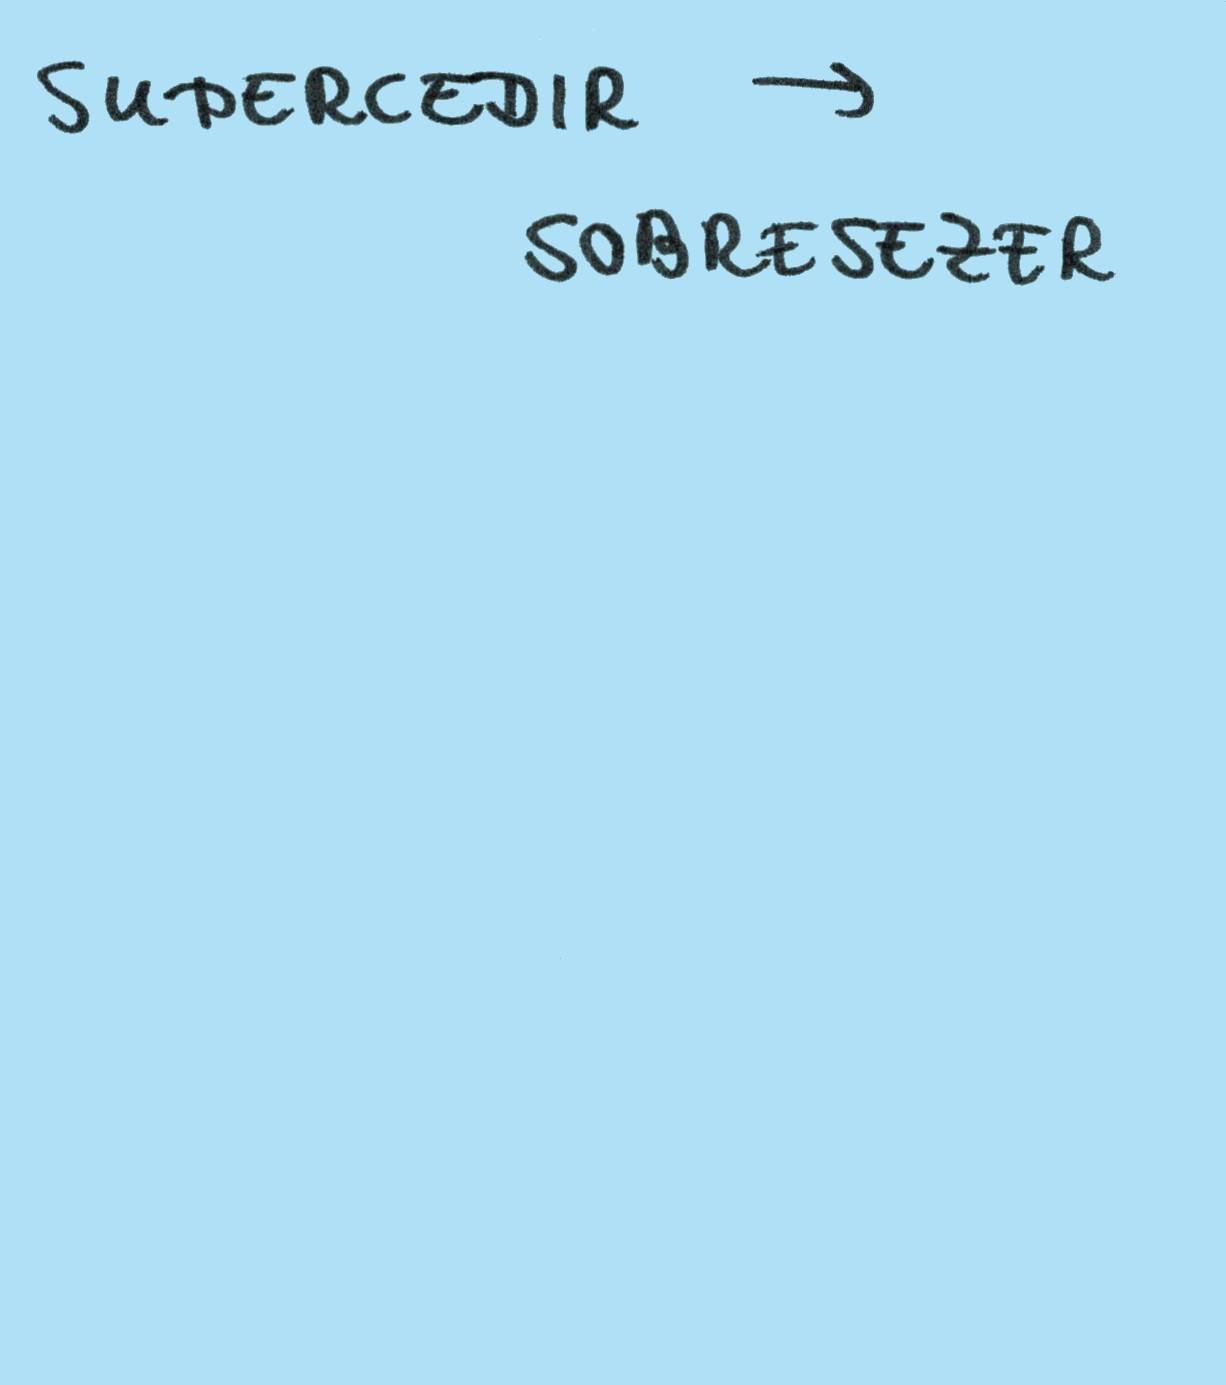 SUPERCEDIR →
SOBRESEZER